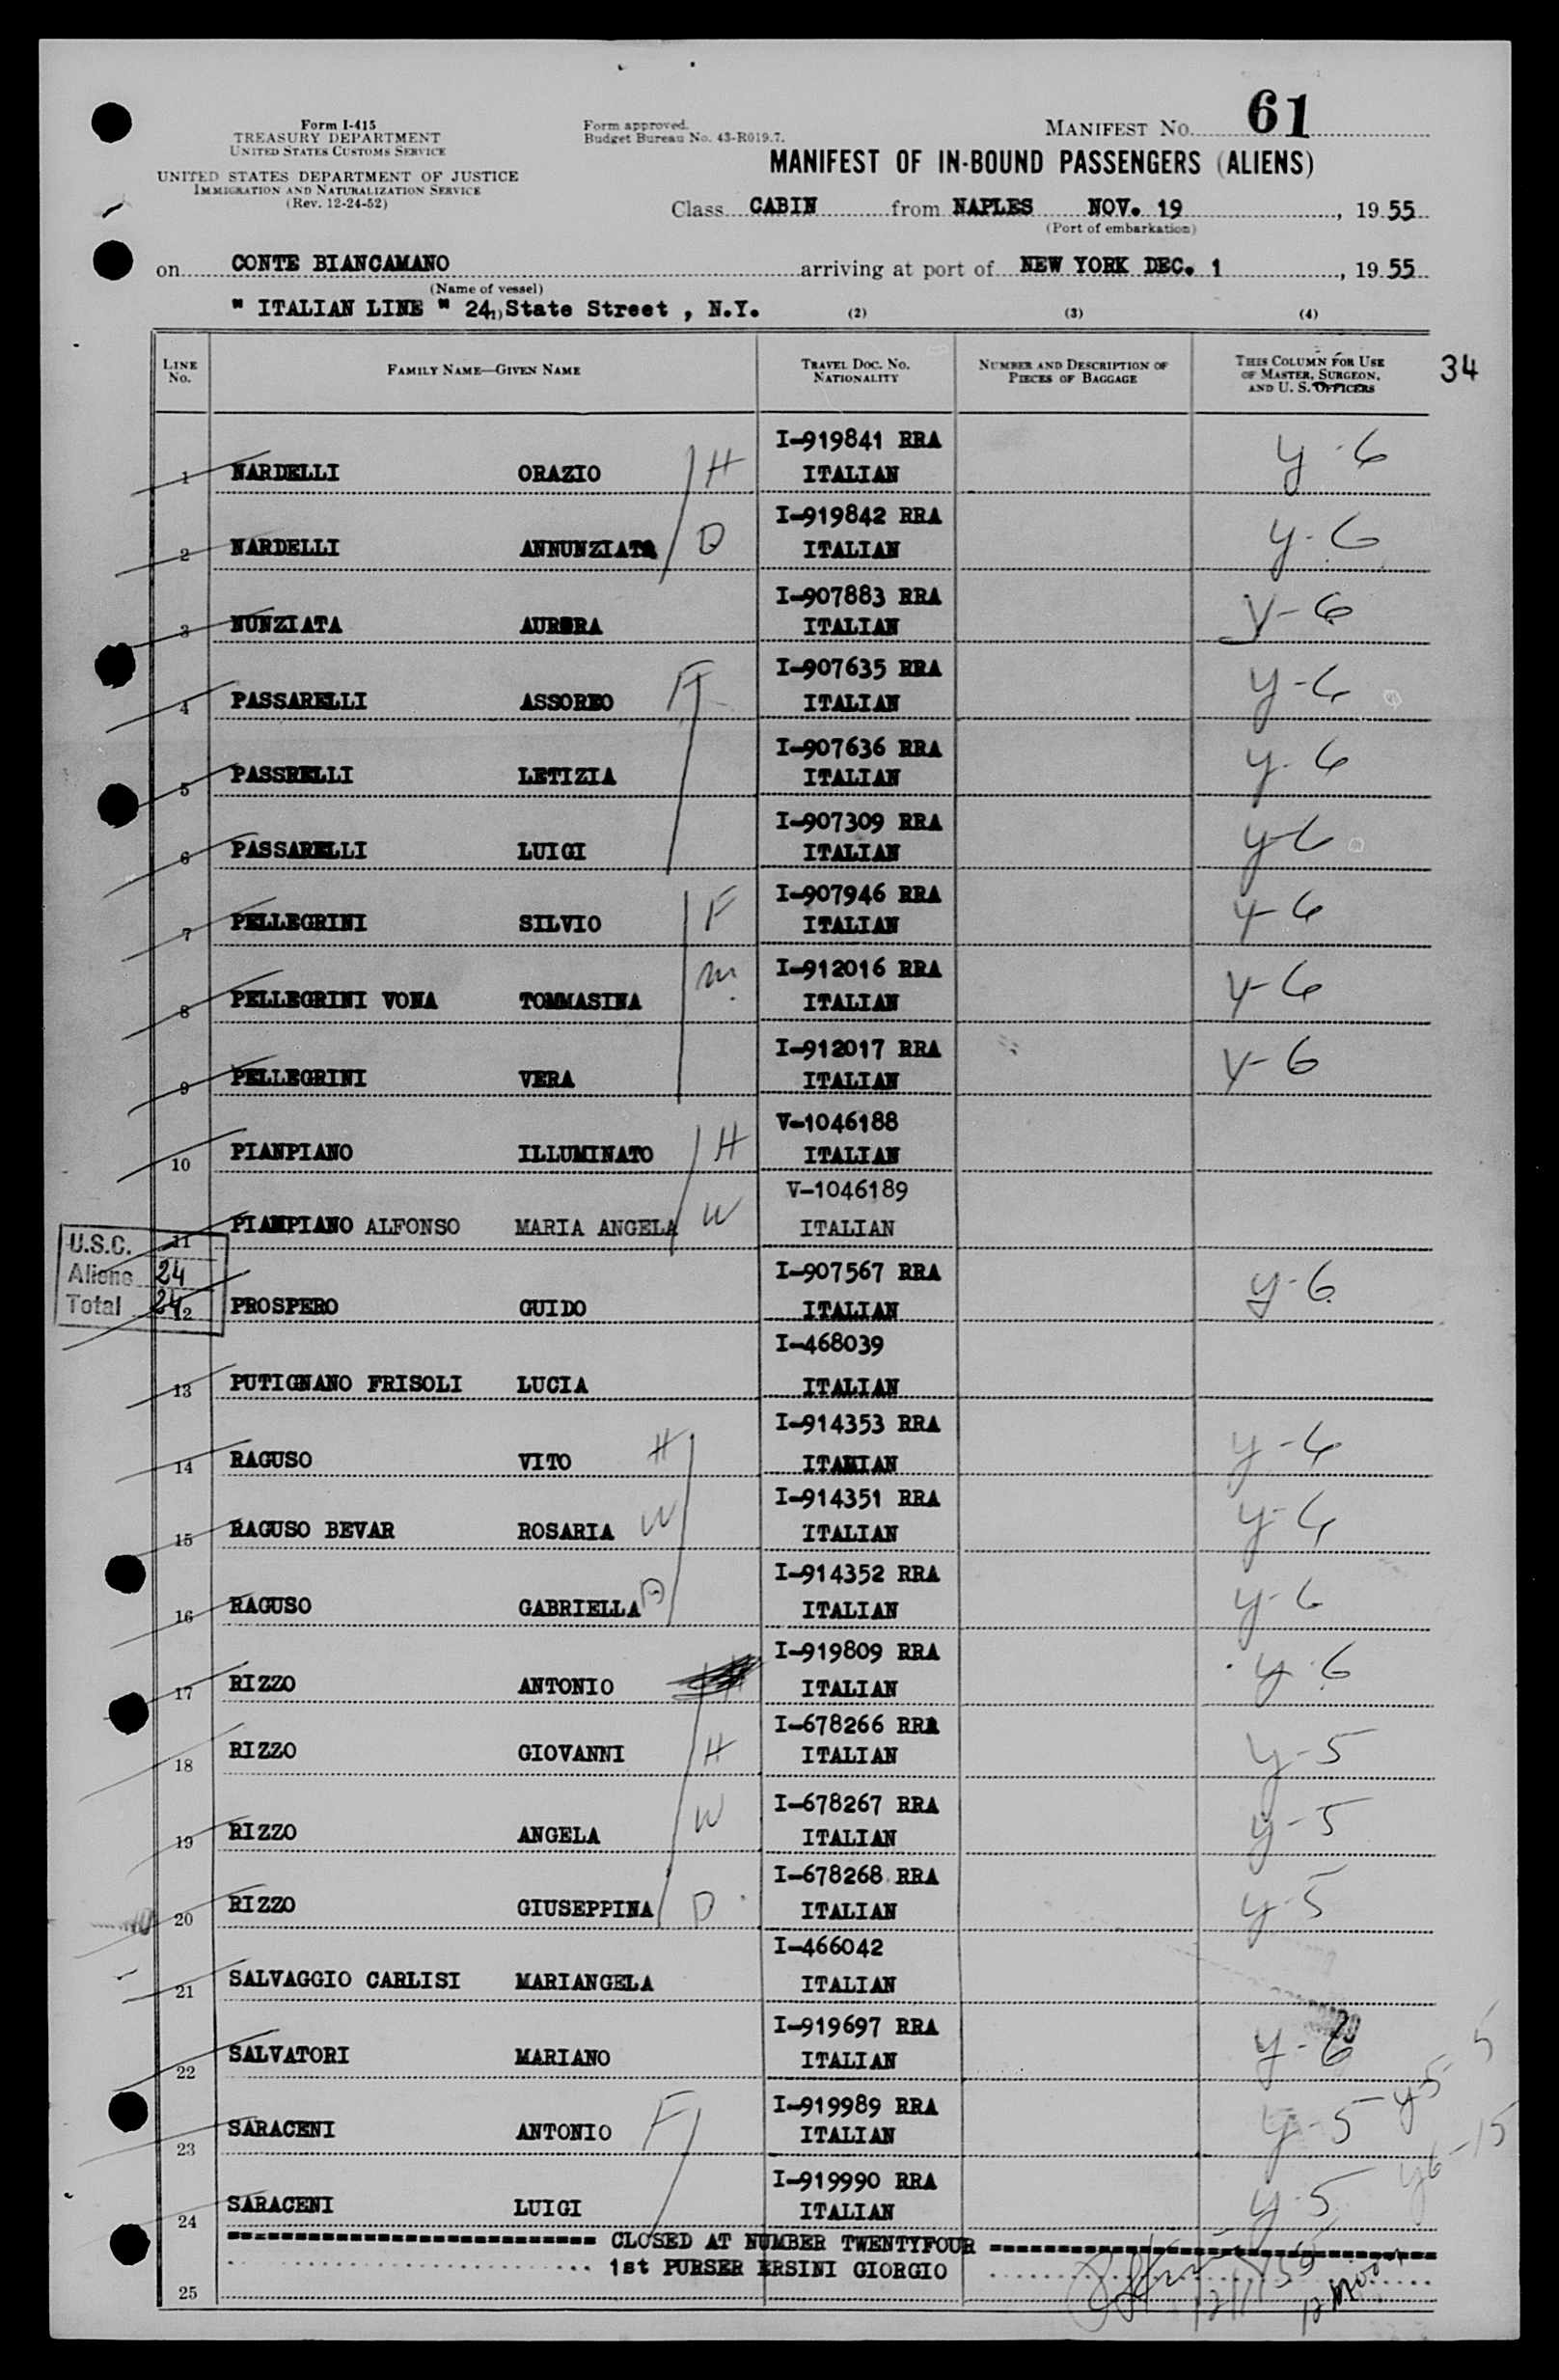 Form I-415
TREASURY DEPARTMENT
UNITED STATES CUSTOMS SERVICE
UNITED STATES DEPARTMENT OF JUSTICE
IMMIGRATION AND NATURALIZATION SERVICE
(Rev. 12-24-52)
Form approved.
Budget Bureau No. 43-R019.7.
MANIFEST NO. 61
MANIFEST OF IN-BOUND PASSENGERS (ALIENS)
Class CABIN from NAPLES NOV. 19, 1955
(Port of embarkation)
on CONTE BIANCAMANO arriving at port of NEW YORK DEC. 1, 1955
(Name of vessel)
" ITALIAN LINE " 24, State Street , N.Y. (2) (3) (4)
LINE No. FAMILY NAME—GIVEN NAME TRAVEL DOC. NO. NATIONALITY NUMBER AND DESCRIPTION OF PIECES OF BAGGAGE THIS COLUMN FOR USE OF MASTER, SURGEON, AND U. S. OFFICERS 34
I-919841 RRA
1 NARDELLI ORAZIO H ITALIAN y-6
I-919842 RRA
2 NARDELLI ANNUNZIATA D ITALIAN y-6
I-907883 RRA
3 NUNZIATA AURORA ITALIAN y-6
I-907635 RRA
4 PASSARELLI ASSOREO F ITALIAN y-6
I-907636 RRA
5 PASSRELLI LETIZIA ITALIAN y-6
I-907309 RRA
6 PASSARELLI LUIGI ITALIAN y-6
I-907946 RRA
7 PELLEGRINI SILVIO F ITALIAN y-6
I-912016 RRA
8 PELLEGRINI VONA TOMMASINA m ITALIAN y-6
I-912017 RRA
9 PELLEGRINI VERA ITALIAN y-6
V-1046188
10 PIANPIANO ILLUMINATO H ITALIAN
V-1046189
11 PIANPIANO ALFONSO MARIA ANGELA W ITALIAN
U.S.C.
Aliens 24
Total 24
I-907567 RRA
12 PROSPERO GUIDO ITALIAN y-6
I-468039
13 PUTIGNANO FRISOLI LUCIA ITALIAN
I-914353 RRA
14 RAGUSO VITO H ITALIAN y-6
I-914351 RRA
15 RAGUSO BEVAR ROSARIA W ITALIAN y-6
I-914352 RRA
16 RAGUSO GABRIELLA D ITALIAN y-6
I-919809 RRA
17 RIZZO ANTONIO ITALIAN y-6
I-678266 RRA
18 RIZZO GIOVANNI H ITALIAN y-5
I-678267 RRA
19 RIZZO ANGELA W ITALIAN y-5
I-678268 RRA
20 RIZZO GIUSEPPINA D ITALIAN y-5
I-466042
21 SALVAGGIO CARLISI MARIANGELA ITALIAN
I-919697 RRA
22 SALVATORI MARIANO ITALIAN y-6
I-919989 RRA
23 SARACENI ANTONIO F ITALIAN y-5 y-5 5
y6-15
I-919990 RRA
24 SARACENI LUIGI ITALIAN y-5
CLOSED AT NUMBER TWENTYFOUR
1st PURSER ERSINI GIORGIO
25 12/1/55